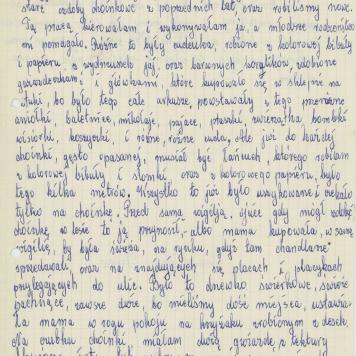 stare ozdoby choinkowe z poprzednich lat, oraz robiliśmy nowe.
Tą pracą kierowałam i wykonywałam ja, a młodsze rodzeństwo
mi pomagało. Różne to były cudeńka, robione z kolorowej bibuły
i papieru, z wydmuszek jaj, oraz barwnych, zdobione
gwiazdeczkami i główkami, które kupowało się w sklepie na
bo było tego całe arkusze, powstawały z tego przeróżne
aniołki, baletnice, mikołaje, pajace, ptaszki, zwierzątka bombki
wisiorki, koszyczki i różne, różne cuda. Ale już do każdej
choinki, gęsto opasanej, musiał być łańcuch, którego robiłam
z kolorowej bibuły i słomki, oraz z kolorowego papieru, było
tego kilka metrów. Wszystko to już było uszykowane i czekało
tylko na choinkę. Przed samą wigilią, ojciec gdy mógł zdobyć
choinkę, w lesie to ją przynosił, albo mama kupowała, w samą
wigilię, by była świeża, na rynku, gdyż tam
sprzedawali, oraz na znajdujących się placach i placykach
przylegających do ulic. Było to drzewko świerkowe, świeże
pachnące, zawsze duże, bo mieliśmy dość miejsca,
mama w rogu pokoju na krzyżaku zrobionym z desek.
Na czubku choinki miałam dużą gwiazdę z tektury